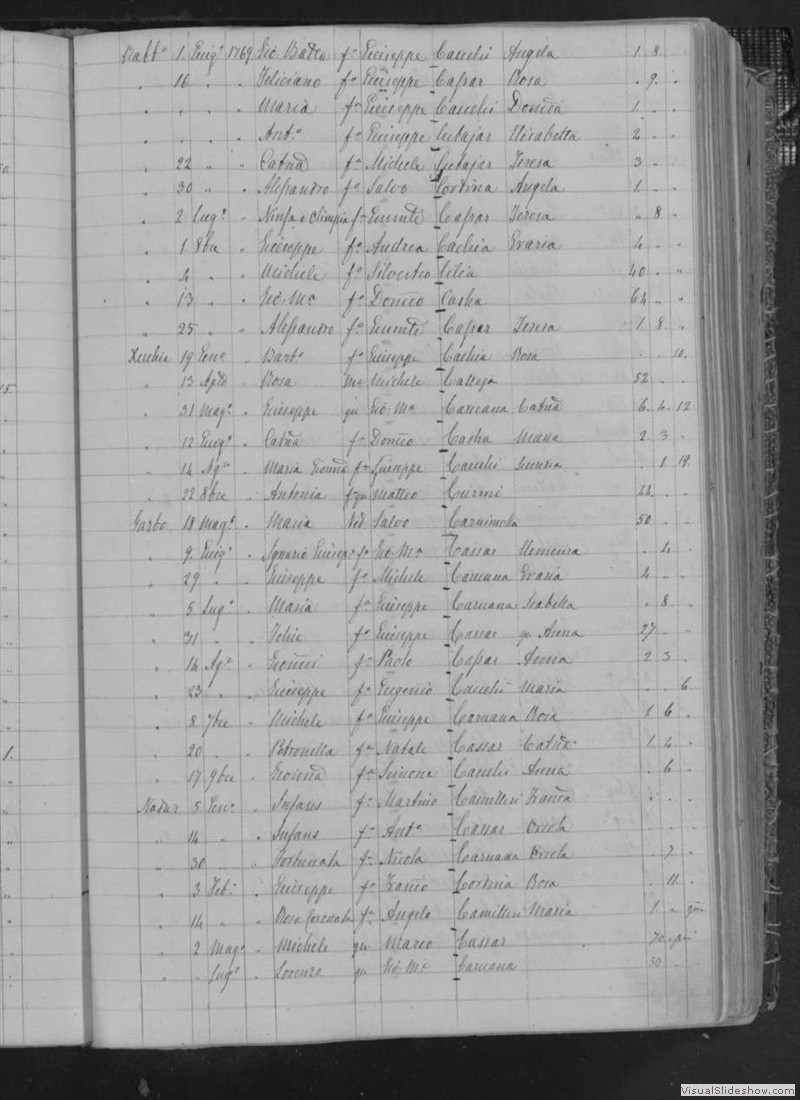 Rabbᵒ 1 Giugᵒ 1769 Gio Batta fᵒ Giuseppe Cauchi Angela 1 8 .
" 16 " " Feliciano fᵒ Giuseppe Cassar Rosa . 9 .
" " " " Maria fᵃ Giuseppe Cauchi Domca 1 . .
" " " " Antᵒ fᵒ Giuseppe Cutajar Elisabetta 2 . .
" 22 " " Catna fᵃ Michele Cutajar Teresa 3 . .
" 30 " " Alessandro fᵒ Salvo Cordina Angela 1 . .
" 2 Lugᵒ " Ninfa o Olimpia fᵃ Cassar Teresa " 8 "
" 1 8bre " Giuseppe fᵒ Andrea Cachia Evaria 4 . .
" 4 " " Michele fᵒ Silvestro Cilia 40 . "
" 13 " " Gio Mᵃ fᵒ Domco Casha 64 . .
" 25 " " Alessandro fᵒ Cassar Teresa 1 8 .
Xeuchia 19 Genᵒ " Bartᵒ fᵒ Giuseppe Cachia Rosa . . 10
" 13 Aple " Rosa Michele Calleja 52 . .
" 31 Magᵒ " Giuseppe qu Gio Mᵃ Caruana Catna 6 4 12
" 12 Giugᵒ " Catna fᵃ Domco Casha Maria 2 3 .
" 14 Agᵗᵒ " Maria Gionna fᵃ Giuseppe Cauchi . 1 19
" 22 8bre " Antonia fᵃ qu Matteo Curmi 44 . .
Garbo 18 Magᵒ " Maria Ved Salvo 50 . .
" 9 Giugᵒ " Ignazio Giusepe fᵒ Gio Mᵃ Cassar . 4 .
" 29 " " Giuseppe fᵒ Michele Caruana Evaria 4 " "
" 5 Lugᵒ " Maria fᵃ Giuseppe Caruana Isabella . 8 .
" 31 " " Felice fᵒ Giuseppe Cassar qu Anna 27 . .
" 14 Agᵗᵒ " Gionni fᵒ Paolo Cassar Anna 2 3 .
" 23 " " Giuseppe fᵒ Eugenio Cauchi Maria . . 6
" 8 7bre " Michele fᵒ Giuseppe Caruana Rosa 1 6 .
" 20 " " Petronella fᵃ Natale Cassar Catna 1 4 .
" 17 9bre " Gionna fᵃ Simone Cauchi Anna . 6 .
Nadur 5 Genᵒ " Infans fᵒ Martino Camilleri Franca . . .
" 14 " " Infans fᵒ Antᵒ Cassar Orsola . . .
" 30 " " Fortunata fᵃ Nicola Caruana Orsola . 7 .
" 3 Feb " Giuseppe fᵒ Franco Cordina Rosa . 11 .
" 14 " " Rosa Coronata fᵃ Angelo Camilleri Maria 1 "
" 2 Magᵒ " Michele qu Marco Cassar 70
" Lugᵒ " Lorenzo qu Gio Mᵃ Caruana 50 . .
50
15
1.
VisualSlideshow.com